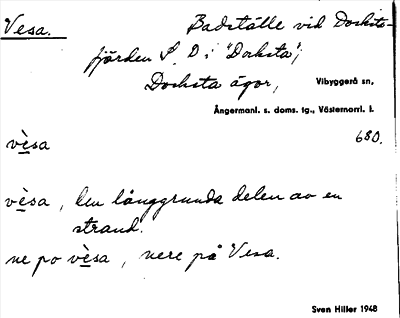 Vesa. Badställe vid Docksta-
fjärden S. D i "Docksta";
Docksta ägor, Vibyggerå sn,
Ångermanl. s. doms. tg., Västernorrl. l.
vèsa 680.
vèsa, den långgrunda delen av en
strand.
ne po vèsa, nere på Vesa.
Sven Hiller 1948